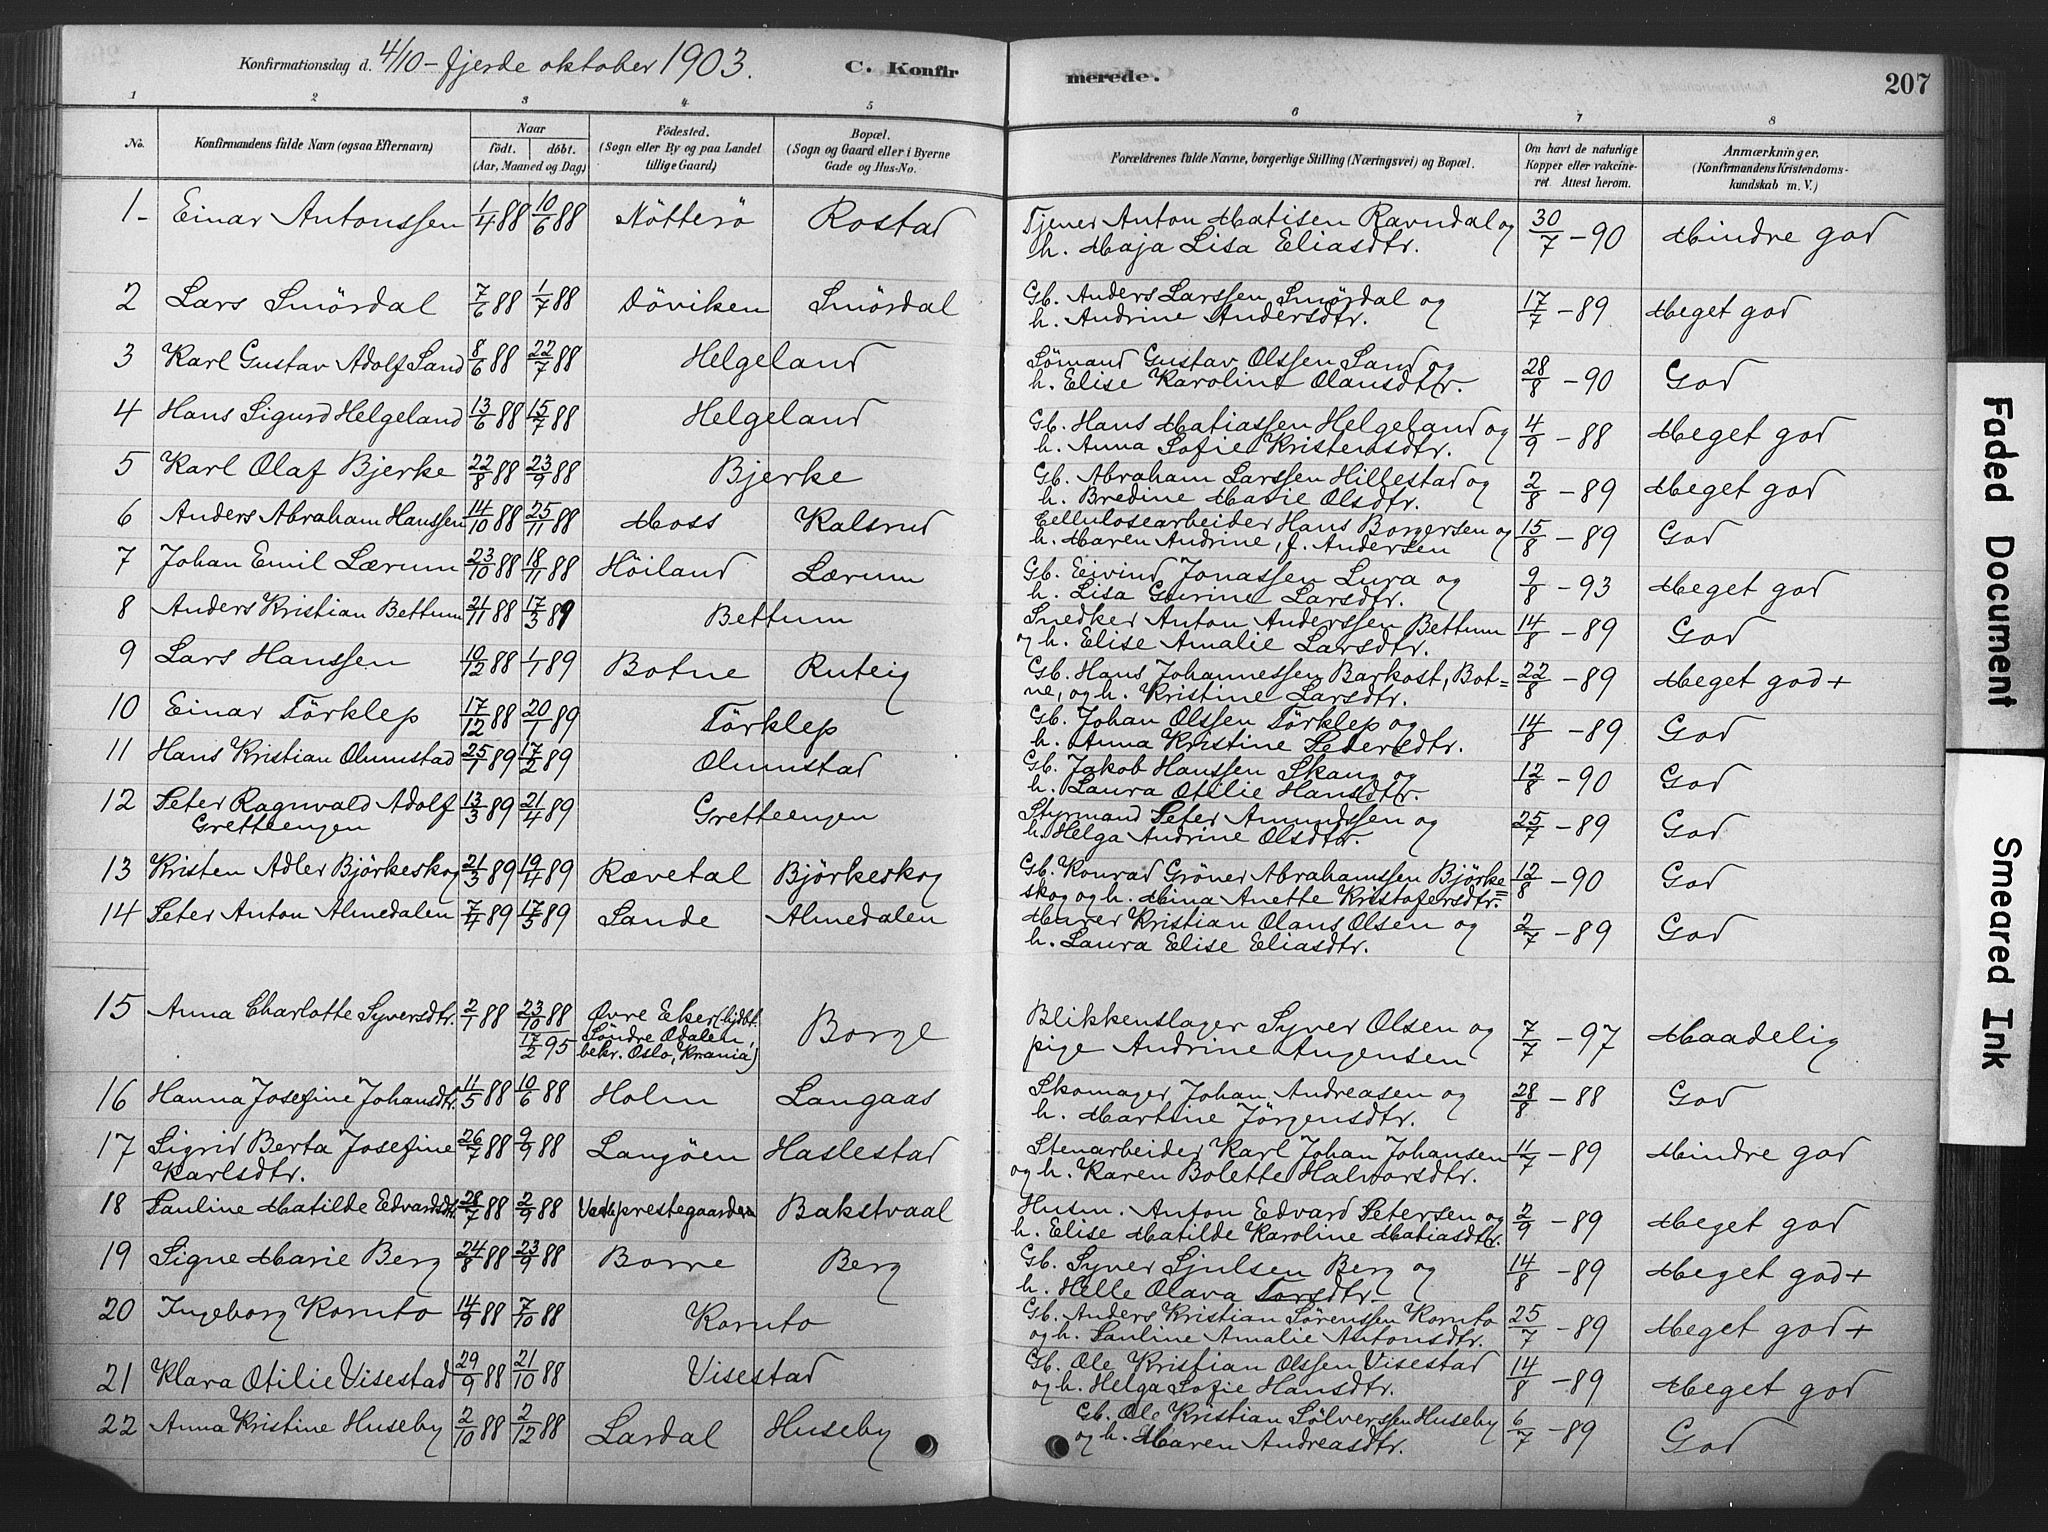 Konfirmationsdag d. 4/10 - fjerde oktober 1903. C. Konfir merede. 207
1 2 3 4 5 6 7 8
No. Konfirmandens fulde Navn (ogsaa Efternavn) Naar födt. döbt. (Aar, Maaned og Dag) Födested. (Sogn eller By og paa Landet tillige Gaard) Bopæl. (Sogn og Gaard eller i Byerne Gade og Hus-No. Forældrenes fulde Navne, borgerlige Stilling (Næringsvei) og Bopæl. Om havt de naturlige Kopper eller vakcineret. Attest herom. Anmærkninger. (Konfirmandens Kristendomskundskab m. V.)
1- Einar Antonssen 1/4 88 10/6 88 Nötterö Rostad Tjener Anton Matisen Ravndal og 30/7 -90 Mindre god
h. Maja Lisa Eliasdtr.
2 Lars Smördal 7/6 88 1/7 88 Döviken Smördal Gb. Anders Larssen Smördal og 17/7 -89 Meget god
h. Andrine Andersdtr.
3 Karl Gustav Adolf Sand 8/6 88 22/7 88 Helgeland Sömand Gustav Olssen Sand og 28/8 -90 God
h. Elise Karoline Olansdtr.
4 Hans Sigurd Helgeland 13/6 88 15/7 88 Helgeland Gb. Hans Matiassen Helgeland og 4/9 -88 Meget god
h. Anna Sofie Kristensdtr.
5 Karl Olaf Bjerke 22/8 88 23/9 88 Bjerke Gb. Abraham Larssen Hillestad og 2/8 -89 Meget god
h. Bredine Marie Olsdtr.
6 Anders Abraham Hanssen 14/10 88 25/11 88 Moss Kalsrud Cellulosearbeider Hans Borgersen og 15/8 -89 God
h. Maren Andrine, f. Andersen
7 Johan Emil Lærum 23/10 88 18/11 88 Höiland Lærum Gb. Eivind Jonassen Lura og 9/8 -93 Meget god
h. Lisa Gurine Larsdtr.
8 Anders Kristian Bettum 21/11 88 17/3 89 Bettum Snedker Anton Anderssen Bettum 14/8 -89 God
og h. Elise Amalie Larsdtr.
9 Lars Hanssen 10/12 88 1/1 89 Botne Ruteig Gb. Hans Johannessen Barkost, Bot= 22/8 -89 Meget god+
ne, og h. Kristine Larsdtr.
10 Einar Törklep 17/12 88 20/1 89 Törklep Gb. Johan Olssen Törklep og 14/8 -89 God
h. Anna Kristine Petersdtr.
11 Hans Kristian Olumstad 25/1 89 17/2 89 Olumstad Gb. Jakob Hanssen Skaug og 12/8 -90 God
h. Laura Otilie Hansdtr.
12 Peter Ragnvald Adolf 13/3 89 21/4 89 Gretteengen Styrmand Peter Amundssen og 25/7 -89 God
Gretteengen h. Helga Andrine Olsdtr.
13 Kristen Adler Björkeskog 21/3 89 19/4 89 Rævetal Björkeskog Gb. Konrad Gröner Abrahamssen Björke= 12/8 -90 God
skog og h. Mina Anette Kristofersdtr.
14 Peter Anton Almedalen 7/4 89 17/5 89 Sande Almedalen Murer Kristian Olaus Olsen og 2/7 -89 God
h. Laura Elise Eliasdtr.
15 Anna Charlotte Syversdtr. 2/1 88 23/10 88 Övre Eker (hjdbt. Borge Blikkenslager Syver Olsen og 7/7 -97 Maadelig
17/2 95 Söndre Odalen, bekr. Oslo, Krania) pige Andrine Augensen
16 Hanna Josefine Johansdtr. 11/5 88 10/6 88 Holm Langaas Skomager Johan Andreasen og 28/8 -88 God
h. Martine Jörgensdtr.
17 Sigrid Berta Josefine 26/7 88 9/9 88 Langöen Haslestad Stenarbeider Karl Johan Johansen 11/7 -89 Mindre god
Karlsdtr. og h. Karen Bolette Halvorsdtr.
18 Pauline Matilde Edvardsdtr. 28/7 88 2/9 88 prestegaarden Bakstvaal Husm. Anton Edvard Petersen og 2/9 -89 Meget god
h. Elise Matilde Karoline Matiasdtr.
19 Signe Marie Berg 24/8 88 23/9 88 Borre Berg Gb. Syver Sjulsen Berg og 14/8 -89 Meget god+
h. Helle Olava Larsdtr.
20 Ingeborg Kornto 14/9 88 7/10 88 Kornto Gb. Anders Kristian Sörenssen Kornto 25/7 -89 Meget god+
og h. Pauline Amalie Antonsdtr.
21 Klara Otilie Visestad 29/9 88 21/10 88 Visestad Gb. Ole Kristian Olssen Visestad 14/8 -89 Meget god
og h. Helga Sofie Hansdtr.
22 Anna Kristine Huseby 2/10 88 2/12 88 Lardal Huseby Gb. Ole Kristian Sölverssen Huseby 6/7 -89 God
og h. Maren Andreasdtr.
Faded Document
Smeared Ink